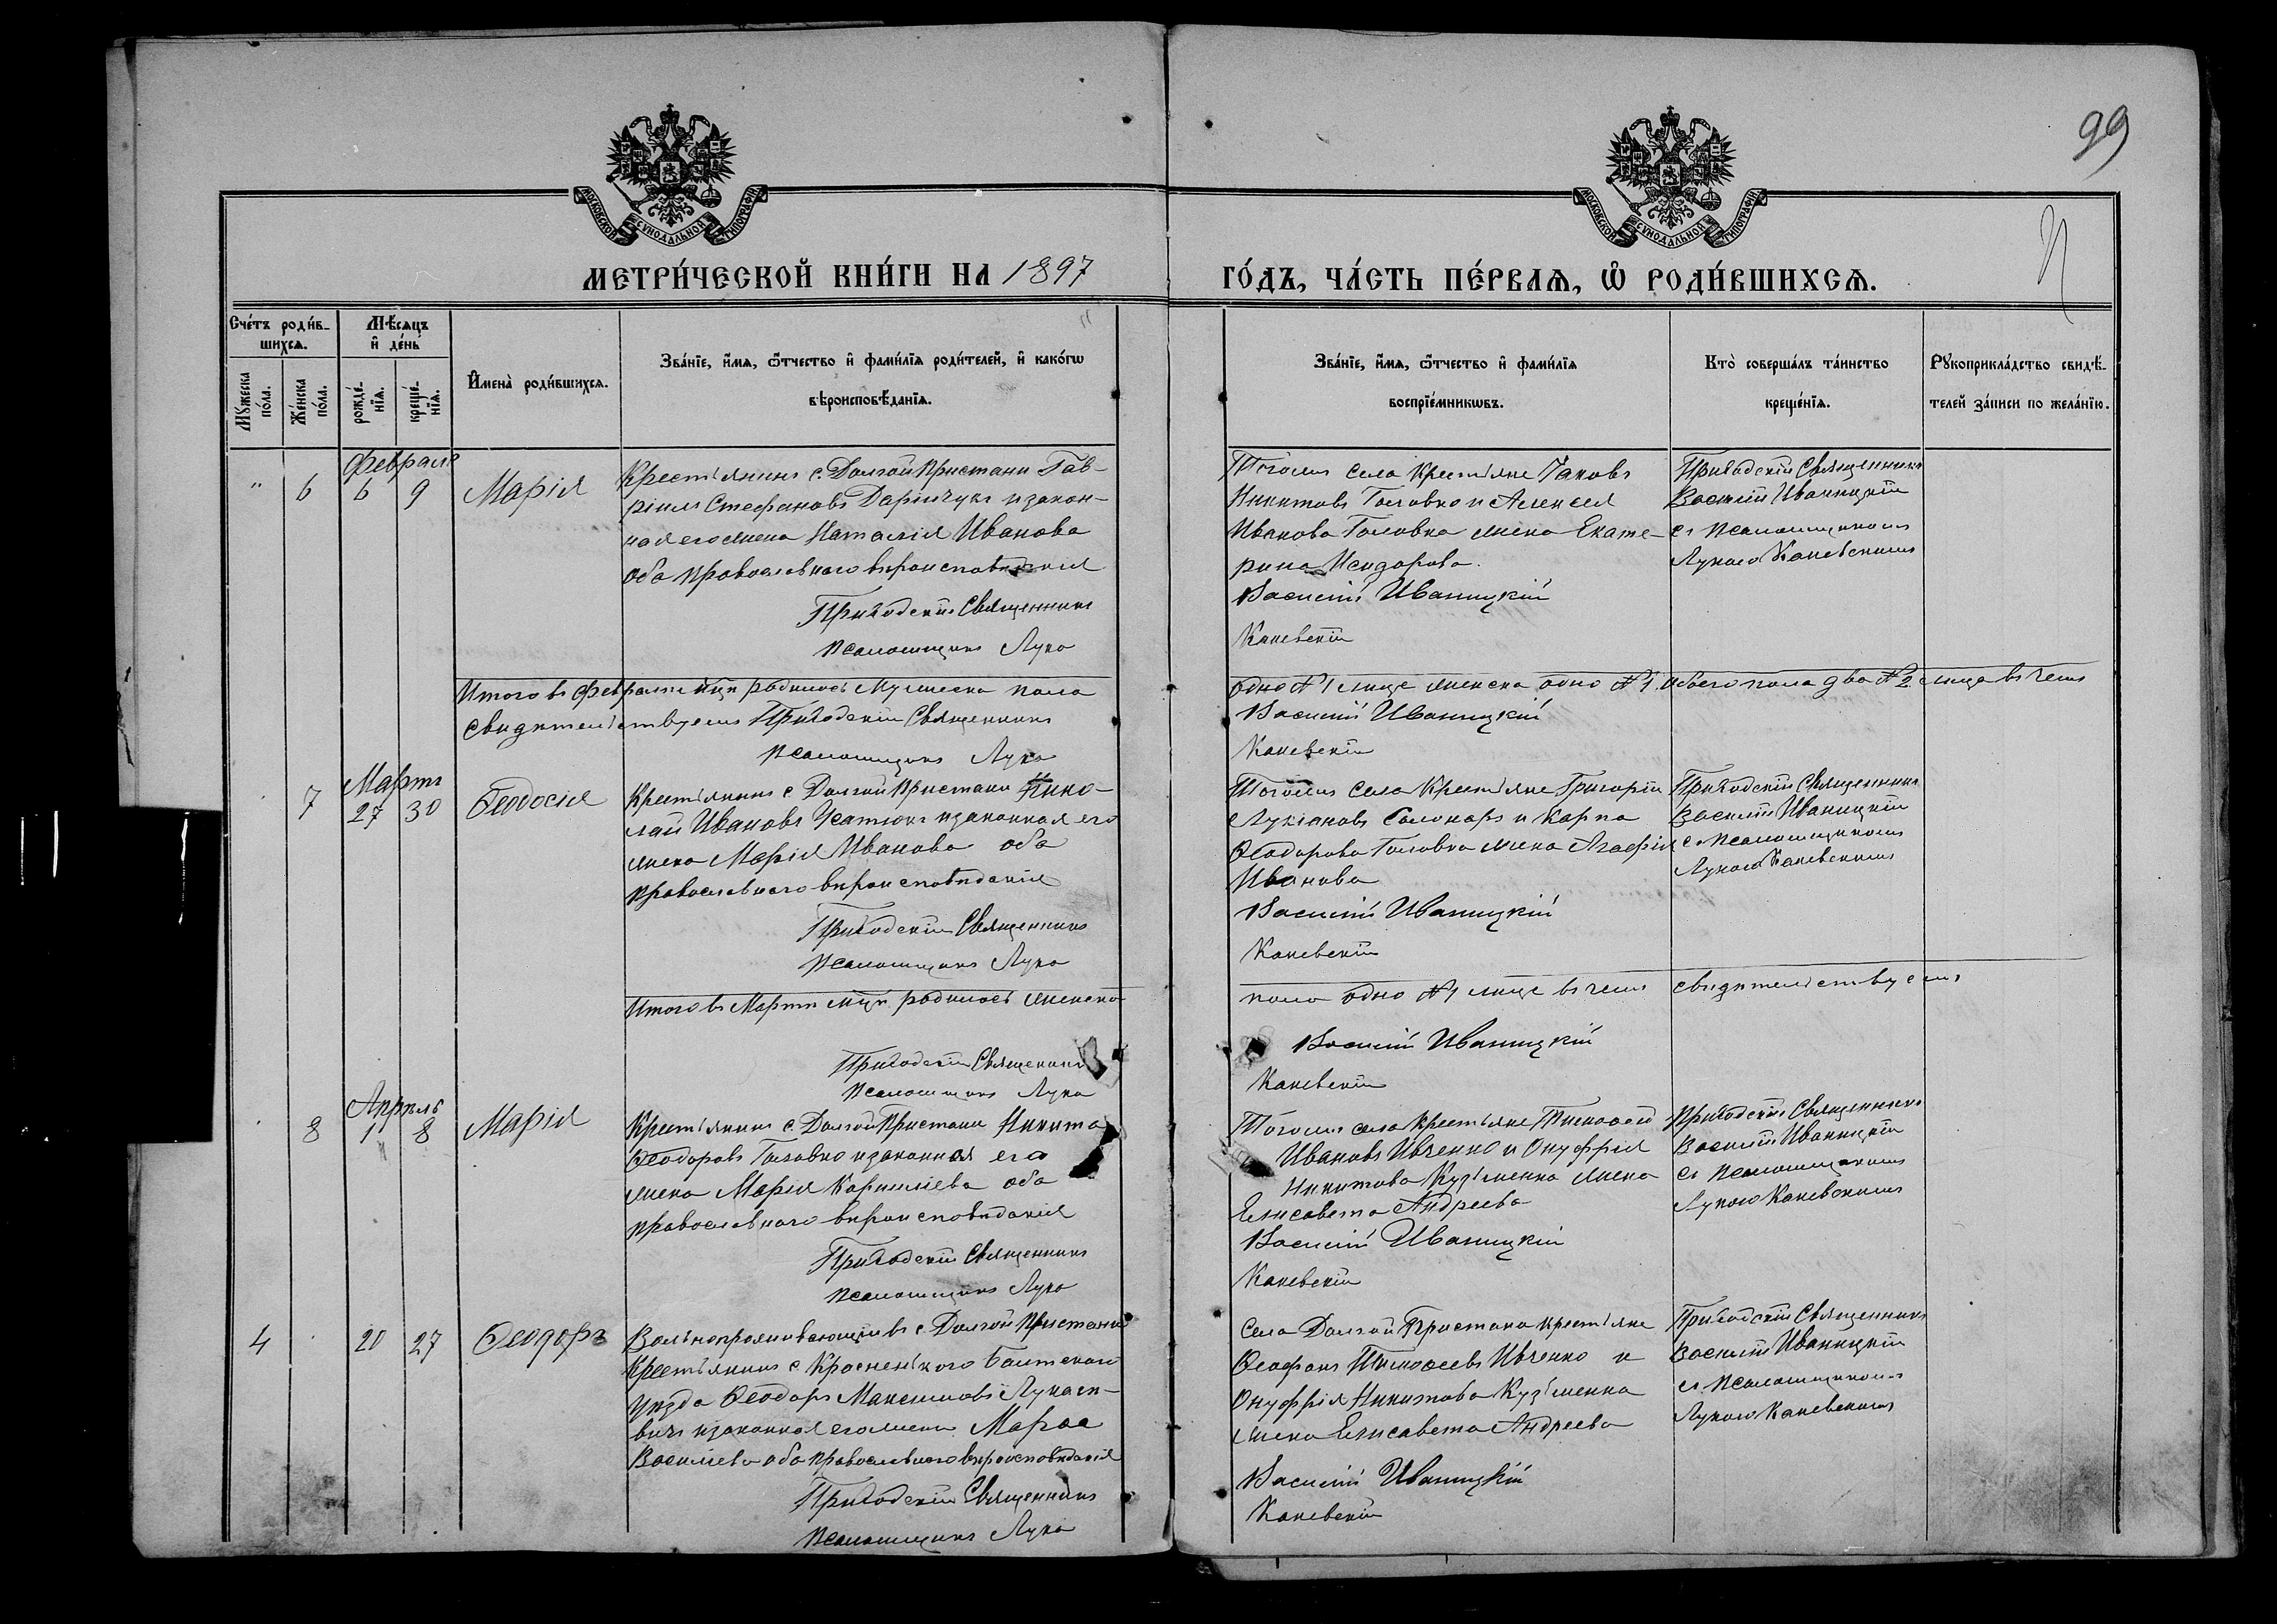 99
МОСКОВСКОЙ СѴНОДАЛЬНОЙ ТИПОГРАФІИ
МОСКОВСКОЙ СѴНОДАЛЬНОЙ ТИПОГРАФІИ
МЕТРИ́ЧЕСКОЙ КНИ́ГИ НА 1897
ГО́ДЪ, ЧА́СТЬ ПЕ́РВАѦ, Ѡ҆ РОДИ́ВШИХСѦ.
Сче́тъ роди́в-
шихсѧ.
Мѣ́сѧцъ
и҆ де́нь
Мꙋ́жеска
по́ла.
Же́нска
по́ла.
рожде́-
нїѧ.
креще́-
нїѧ.
И҆мена̀ роди́вшихсѧ.
Зва́нїе, и҆́мѧ, ѻ҆́тчество и҆ фами́лїѧ роди́телей, и҆ како́гѡ
вѣроисповѣ́данїѧ.
Зва́нїе, и҆́мѧ, ѻ҆́тчество и҆ фами́лїѧ
воспрїе́мникѡвъ.
Кто̀ соверша́лъ та́инство
креще́нїѧ.
Рꙋкоприкла́дство свидѣ́-
телей за́писи по жела́нїю.
Февраль
" 6 6 9 Марія
Крестьянинъ с. Долгой Пристани Гав-
ріилъ Стефановъ Дарійчукъ и закон-
ная его жена Наталія Иванова
оба православнаго вѣроисповѣданія
Приходскій Священникъ
псаломщикъ Лука
Тогожъ села крестьяне Іаковъ
Никитовъ Головко и Алексея
Иванова Головка жена Екате-
рина Исидорова.
Василій Иваницкій
Каневскій
Приходскій Священникъ
Василій Иваницкій
съ псаломщикомъ
Лукою Каневскимъ
Итого въ Февралѣ мцѣ родилось Мужеска пола
одно № 1 лице женска одно № 1 обоего пола два № 2 лица въ чемъ
свидѣтельствуемъ Приходскій Священникъ
Василій Иваницкій
псаломщикъ Лука
Каневскій
Мартъ
7 27 30 Ѳеодосія
Крестьянинъ с. Долгой Пристани Нико-
лай Ивановъ Усатюкъ и законная его
жена Марія Иванова оба
православнаго вѣроисповѣданія
Приходскій Священникъ
псаломщикъ Лука
Тогожъ села крестьяне Григорій
Лукіановъ Солонарь и Карпа
Ѳеодорова Головка жена Агафія
Иванова
Василій Иваницкій
Каневскій
Приходскій Священникъ
Василій Иваницкій
съ псаломщикомъ
Лукою Каневскимъ
Итого въ Мартѣ мцѣ родилось женска
пола одно № 1 лице въ чемъ свидѣтельствуемъ
Приходскій Священникъ
Василій Иваницкій
псаломщикъ Лука
Каневскій
Апрѣль
8 1 8 Марія
Крестьянинъ с. Долгой Пристани Никита
Ѳеодоровъ Головко и законная его
жена Марія Корнилієва оба
православнаго вѣроисповѣданія
Приходскій Священникъ
псаломщикъ Лука
Тогожъ села крестьяне Тимоѳей
Ивановъ Ивченко и Онуфрія
Никитова Кузьменка жена
Елисавета Андреева
Василій Иваницкій
Каневскій
Приходскій Священникъ
Василій Иваницкій
съ псаломщикомъ
Лукою Каневскимъ
4 20 27 Ѳеодоръ
Вольнопроживающій въ с. Долгой Пристани
крестьянинъ с. Красненького Балтскаго
уѣзда Ѳеодоръ Максимовъ Лукаše-
вичъ и законная его жена Марѳа
Василіева оба православнаго вѣроисповѣданія
Приходскій Священникъ
псаломщикъ Лука
Села Долгой Пристани крестьяне
Ѳеофанъ Тимоѳеевъ Ивченко и
Онуфрія Никитова Кузьменка
жена Елисавета Андреева
Василій Иваницкій
Каневскій
Приходскій Священникъ
Василій Иваницкій
съ псаломщикомъ
Лукою Каневскимъ